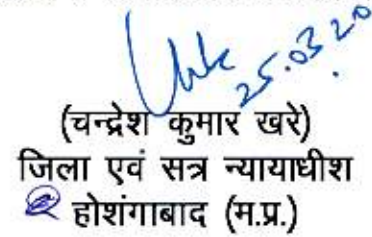 25.03.20
(चन्द्रेश कुमार खरे)
जिला एवं सत्र न्यायाधीश
होशंगाबाद (म.प्र.)